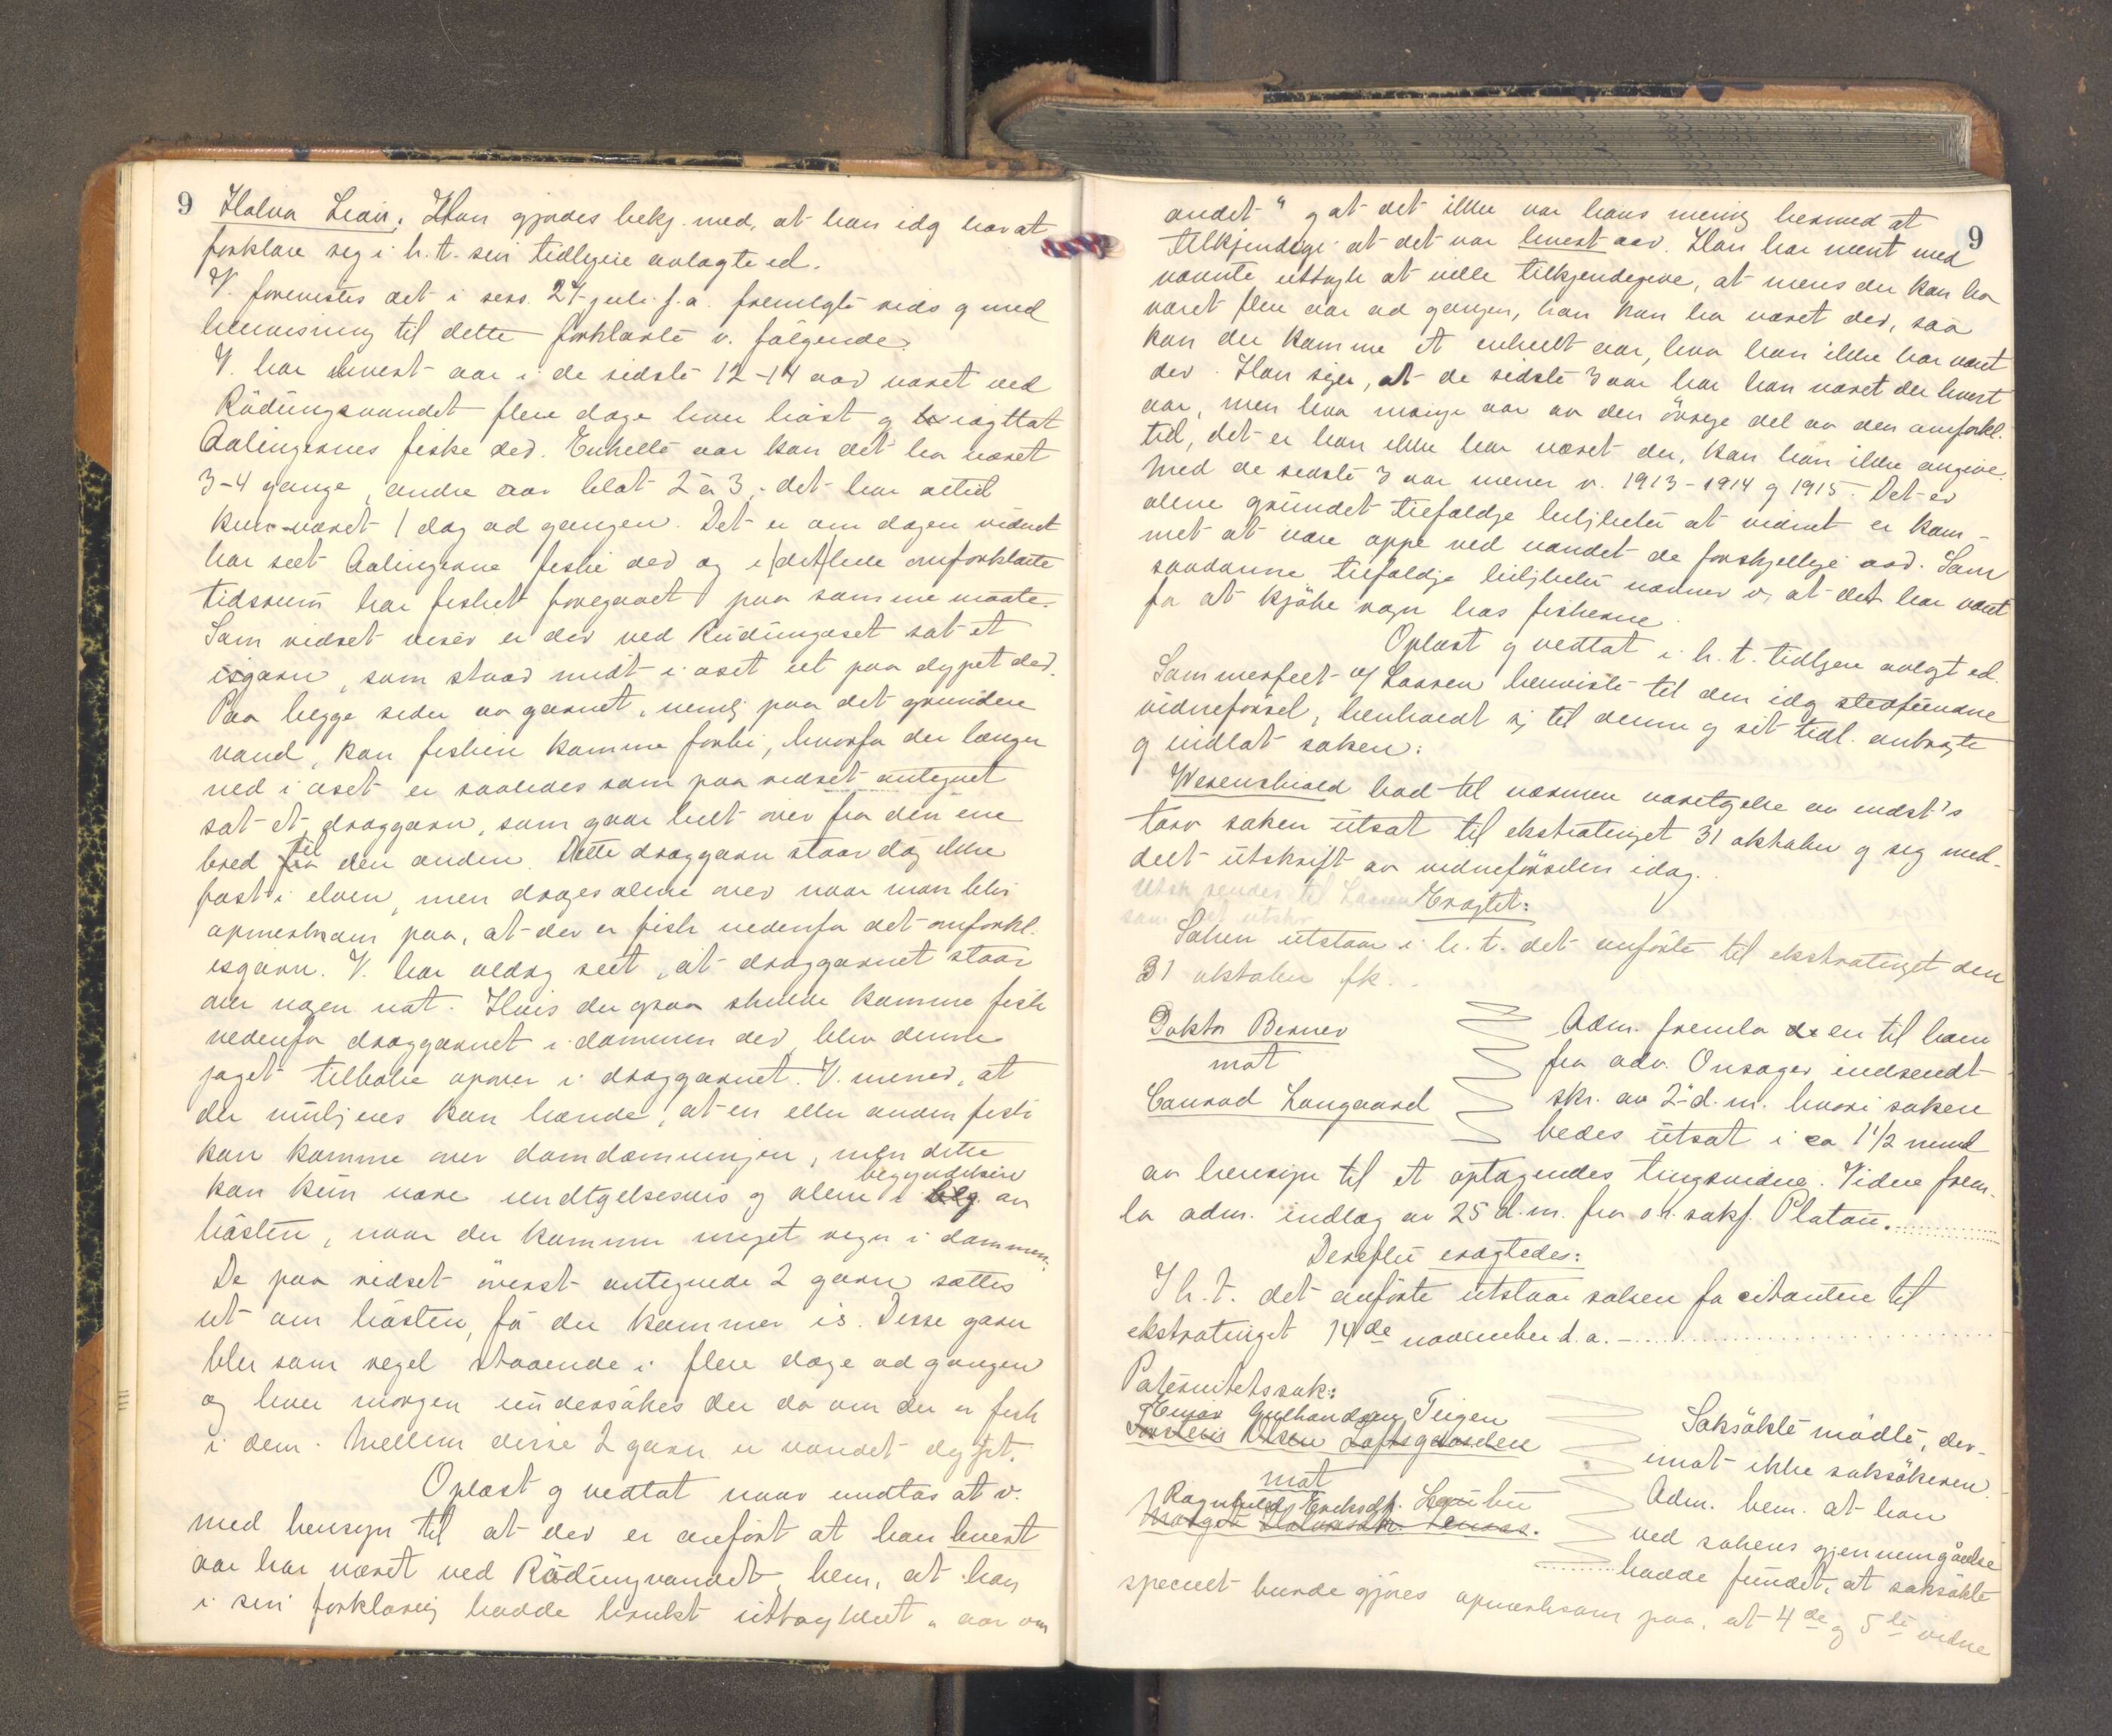 9
Halvor Lien: Han gjordes bekj. med, at han idag har at
forklare seg i h.t. sin tidligere avlagte ed.
V. forevistes det i sess. 24 juli f.a. fremlagte rids og med
henvisning til dette forklarte v. følgende:
V. har hvert aar i de sidste 12-14 aar været ved
Rødungsvandet flere dage hver høst og iagttat
Aalingernes fiske der. Enkelte aar kan det ha været
3-4 gange, andre aar blot 2 à 3, - det har altid
kun været 1 dag ad gangen. Det er om dagen vidnet
har seet Aalingerne fiske der og i det hele omforklarte
tidsrum har fisket foregaaet paa samme maate.
Som ridset viser er der ved Rødungsoset sat et
isgarn, som staar midt i oset ut paa dypet der.
Paa begge sider av garnet, nemlig paa det grundere
vand, kan fisken komme forbi, hvorfor der længer
ned i oset er saaledes som paa ridset antegnet
sat et draggarn, som gaar helt over fra den ene
bred til den anden. Dette draggarn staar dog ikke
fast i elven, men drages alene over naar man blir
opmerksom paa, at der er fisk nedenfor det omforkl.
isgarn. V. har aldrig seet, at draggarnet staar
over nogen nat. Hvis der ogsaa skulde komme fisk
nedenfor draggarnet i dammen der, blev denne
jaget tilbake opover i draggarnet. V. mener, at
der muligens kan hænde, at en eller anden fisk
kan komme over damdæmningen, men dette
kan kun være undtagelsesvis og alene i begyndelsen av
høsten, naar der kommer meget regn i dammen.
De paa ridset øverst antegnede 2 garn sættes
ut om høsten, før der kommer is. Disse garn
blir som regel staaende i flere dage ad gangen
og hver morgen undersøkes der da om der er fisk
i dem. Mellem disse 2 garn er vandet dypt.
Oplæst og vedtat naar undtas at v.
med hensyn til at der er anført at han hvert
aar har været ved Rødungvandet, bem. at han
i sin forklaring hadde brukt uttrykket „aar om
9
andet“ og at det ikke var hans mening hermed at
tilkjendegi at det var hvert aar. Han har ment med
nævnte uttrykk at ville tilkjendegive, at mens der kan ha
været flere aar ad gangen, han kan ha været der, saa
kan der komme et enkelt aar, hvor han ikke har været
der. Han siger, at de sidste 3 aar har han været der hvert
aar, men hvor mange aar av den øvrige del av den omforkl.
tid, det er han ikke har været der, kan han ikke angive.
Med de sidste 3 aar mener v. 1913-1914 og 1915. Det er
alene grundet tilfældige leiligheter at vidnet er kom-
met at være oppe ved vandet de forskjellige aar. Som
saadanne tilfældige leiligheter nævner v. at det har været
for at kjøpe rogn hos fiskerne.
Oplæst og vedtat i h.t. tidligere avlagt ed.
Sommerfeldt o/ Larsen henviste til den idag stedfundne
vidneførsel, henholdt sig til denne og sit tidl. anbragte
og indlot saken:
Wesenskiold bad til nærmere varetagelse av indst's
tarv saken utsat til ekstratinget 31 oktober og seg med-
delt utskrift av vidneførselen idag.
Utsk sendes til Larsen
Eragtet:
Saken utstaar i h.t. det anførte til ekstratinget den
31 oktober fk.
Doktor Berner
mot
Conrad Langaard
Adm. fremla en til ham
fra adv. Onsager indsendt
skr. av 2' d.m. hvori saken
bedes utsat i ca 1 1/2 mnd
av hensyn til et optagendes tingsvidne. Videre frem-
la adm. indlæg av 25 d.m. fra o.r. sakf. Platou.
Derefter eragtedes:
I h.t. det anførte utstaar saken for citanten til
ekstratinget 14de november d.a. -
Paternitetssak:
Einar Gulbrandsen Teigen
Torstein Olsen Loftsgaarden
mot
Ragnhild Eriksdtr. Laubu
Saksøkte mødte, der-
imot ikke saksøkeren.
Adm. bem. at han
ved sakens gjennemgåelse
hadde fundet, at saksøkte
specielt burde gjøres opmerksom paa, at 4de og 5te vidne